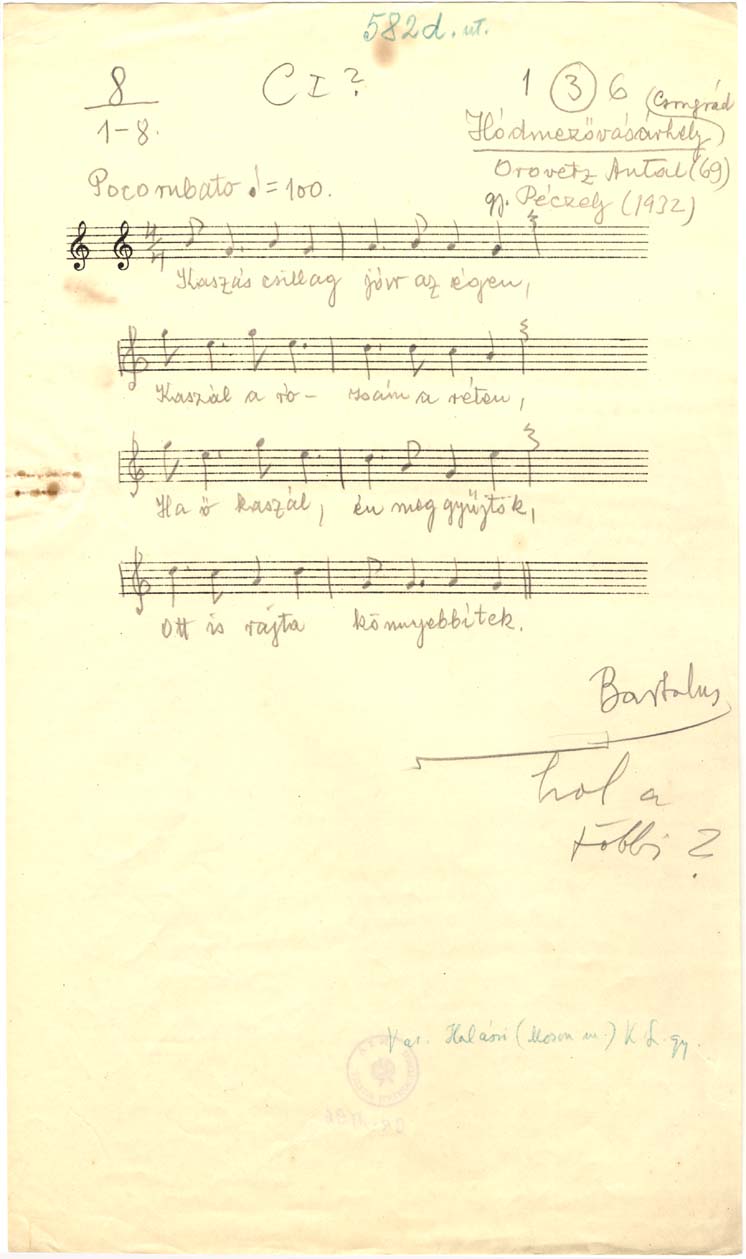 582d. ut.
8
1-8.
C I ?
1 3 6
(Csongrád
Hódmezővásárhely)
Orovetz Antal (69)
gy. Péczely (1932)
Poco rubato ♩= 100.
4/4
Kaszás csillag jövr az égen,
Kaszál a ró- zsám a réten,
Ha ő kaszál, én meg gyűjtök,
Ott is rajta könnyebbítek.
Bartalus
hol a
többi ?
Var. Halászi (Moson m.) K L. gy.